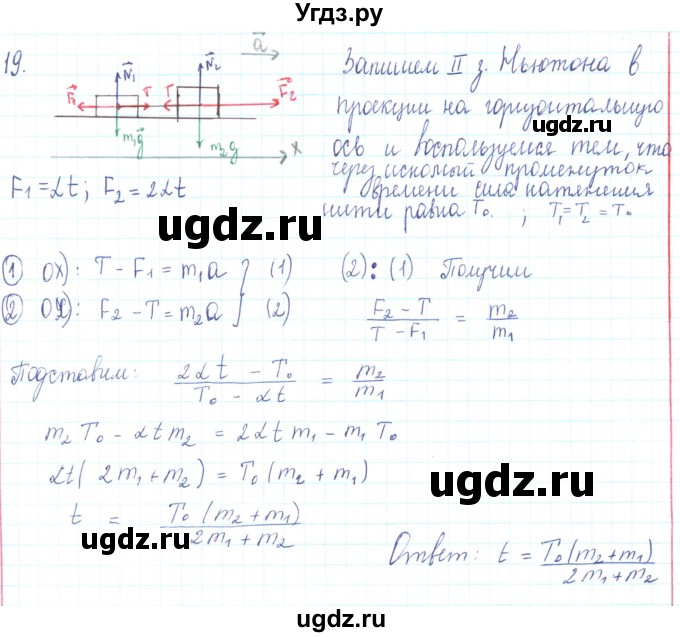 Угдз.ру
19.
N⃗₁ N⃗₂ a⃗
F⃗₁ T T F⃗₂
m₁g⃗ m₂g X
Запишем II з. Ньютона в
проекции на горизонтальную
ось и воспользуемся тем, что
через искомый промежуток
времени сила натяжения
нити равна T₀. ; T₁=T₂=T₀
F₁=αt; F₂=2αt
ugdz.ru
ugdz.ru
① OX): T - F₁ = m₁a } (1)
② OX): F₂ - T = m₂a } (2)
(2) : (1) Получим
(F₂ - T)/(T - F₁) = m₂/m₁
ugdz.ru
Подставим: (2αt - T₀)/(T₀ - αt) = m₂/m₁
m₂T₀ - αtm₂ = 2αtm₁ - m₁T₀
αt(2m₁+m₂) = T₀(m₂+m₁)
ugdz.ru
t = T₀(m₂+m₁)/2m₁+m₂
ugdz.ru
Ответ: t = T₀(m₂+m₁)/2m₁+m₂
ugdz.ru